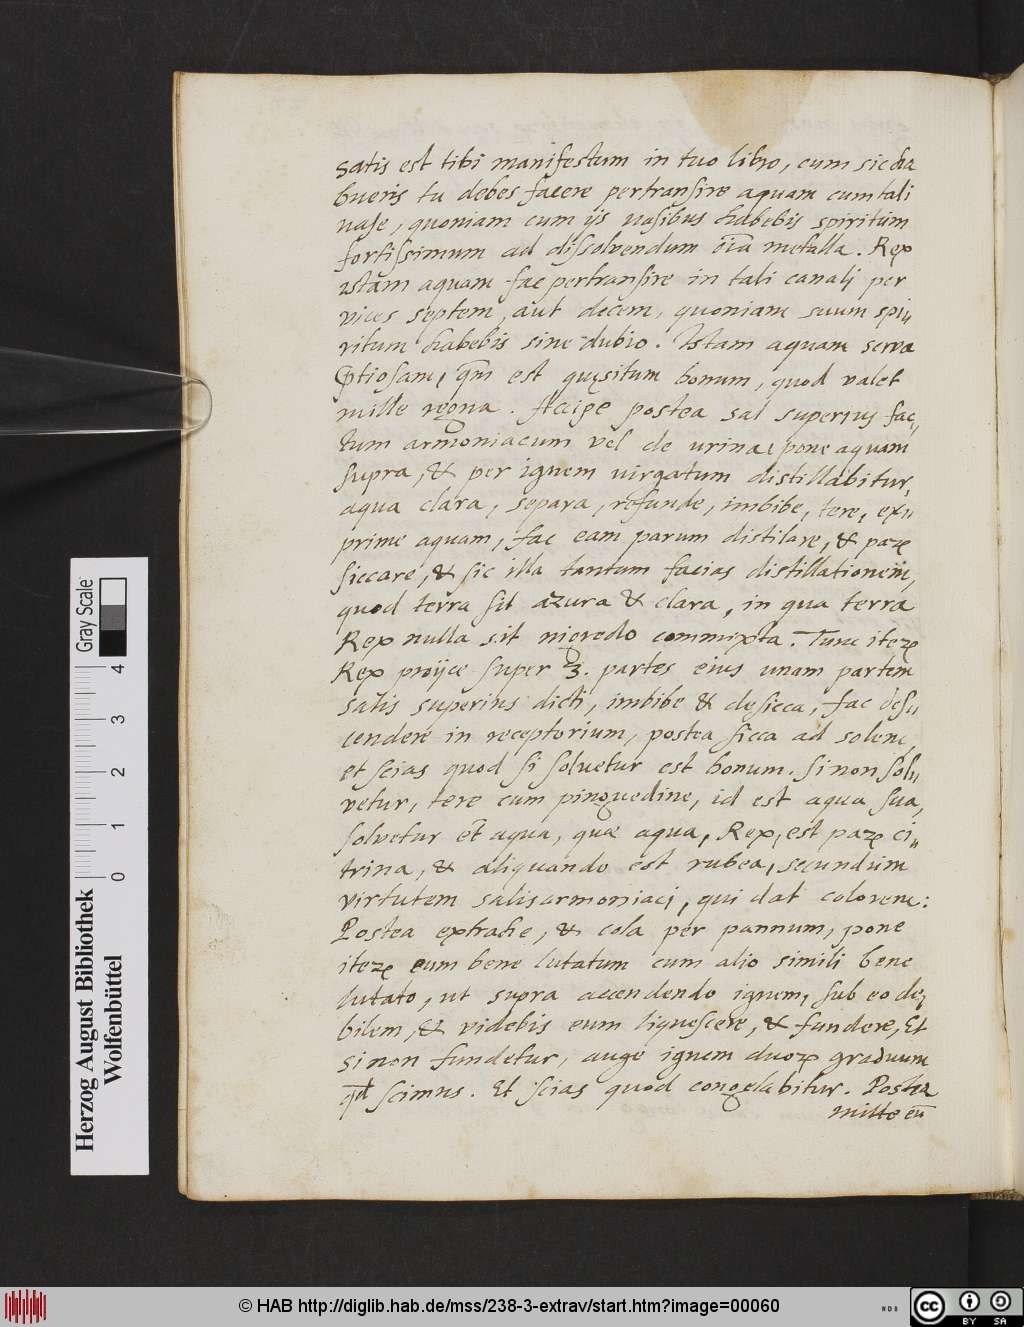 satis est tibi manifestum in tuo libro, cum sic ha
bueris tu debes facere pertransire aquam cum tali
vase, quoniam cum ijs vasibus habebis spiritum
fortissimum ad dissolvendum oīa metalla. Rex
istam aquam fac pertransire in tali canali per
vices septem, aut decem, quoniam suum spi,,
ritum habebis sine dubio. Istam aquam serva
p̄tiosam, qm̄ est quęsitum bonum, quod valet
mille regna. Accipe postea sal superius fac,,
tum armoniacum vel de urina, pone aquam
supra, & per ignem virgatum distillabitur,
aqua clara, separa, refunde, imbibe, tere, ex,,
prime aquam, fac eam parum distilare, & parꝫ
siccare, & sic illa tantum facias distillationem,
quod terra sit azura & clara, in qua terra
Rex nulla sit nigredo commixta. Tunc iterꝫ
Rex proijce super 3. partes eius unam partem
salis superius dicti, imbibe & desicca, fac desc,,
cendere in receptorium, postea sicca ad solem,
et scias quod si solvetur est bonum. si non sol,,
vetur, tere cum pinguedine, id est aqua sua,
solvetur et aqua, quæ aqua, Rex, est parꝫ ci,,
trina, & aliquando est rubea, secundum
virtutem salis armoniaci, qui dat colorem:
Postea extrahe, & cola per pannum, pone
iterꝫ eum bene lutatum cum alio simili bene
lutato, ut supra accendendo ignem, sub eo de,,
bilem, & videbis eum liquescere, & fundere, Et
si non fundetur, auge ignem duoꝝ graduum
qd scimus. Et scias quod congelabitur. Postea
mitte eū
Herzog August Bibliothek
Wolfenbüttel
0 1 2 3 4
Gray Scale
© HAB http://diglib.hab.de/mss/238-3-extrav/start.htm?image=00060
cc BY SA